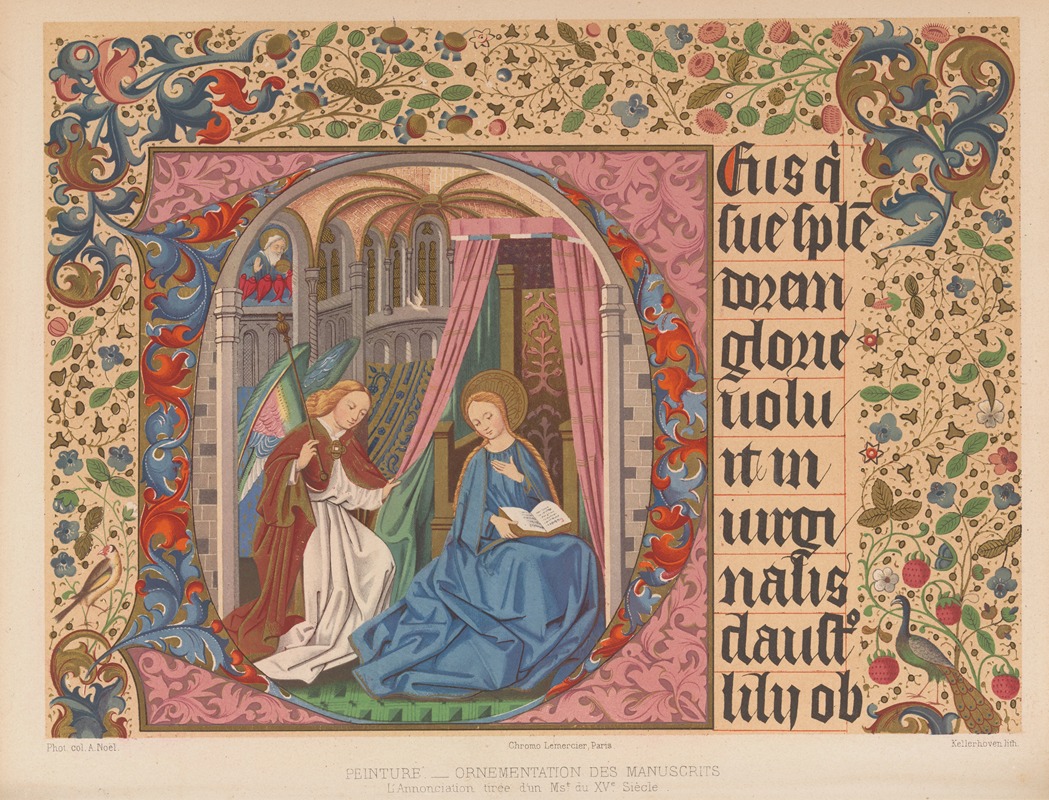 D Eus q̇
sue splē
dorem
glorie
uolu
it in
uirgi
nalis
claustº
lilij ob
Phot. col. A. Noël.
Chromo Lemercier, Paris.
Kellerhoven, lith.
PEINTURE. __ ORNEMENTATION DES MANUSCRITS
L'Annonciation tirée d'un Msᵗ du XVᵉ Siècle.